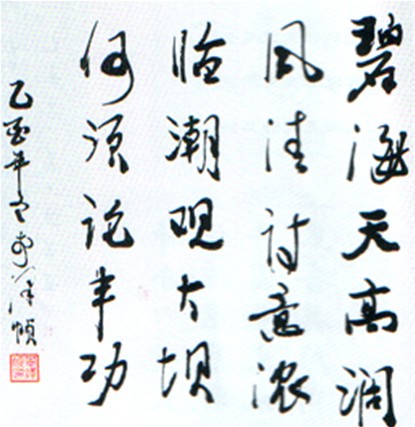 碧海天高阔
风清诗意浓
临潮观大坝
何须论丰功
乙酉年